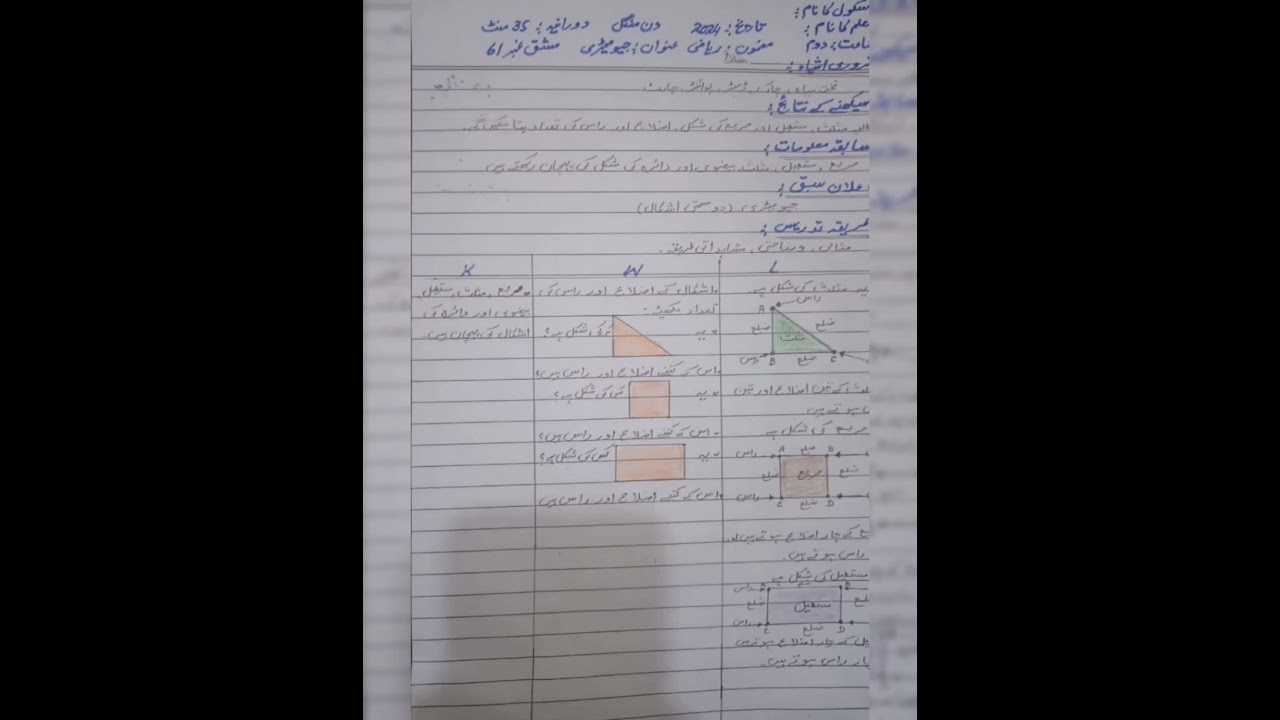 سکول کا نام:
علم کا نام: تاریخ: 2024 دن منگل دورانیہ: 35 منٹ
ماعت: دوم مضمون: ریاضی عنوان: جیومیٹری مشق نمبر 61
روری اشیاء:
تختہ سیاہ، چاک، ڈسٹر، پوائنٹر، چارٹ
سیکھنے کے نتائج:
مثلث، مستطیل اور مربع کی شکل، اضلاع اور راس کی تعداد بتا سکیں گے۔
سابقہ معلومات:
مربع، مستطیل، مثلث، بیضوی اور دائرہ کی شکل کی پہچان رکھتے ہیں
اعلان سبق:
جیومیٹری (دو سمتی اشکال)
طریقہ تدریس:
مثالی، وضاحتی، مشاہداتی طریقہ۔
L W K
یہ مثلث کی شکل ہے۔
راس
A
ضلع ضلع
مثلث
راس B ضلع C
کے تین اضلاع اور تین
ہوتے ہیں۔
مربع کی شکل ہے۔
راس A ضلع B
ضلع مربع ضلع
راس C ضلع D
ع کے چار اضلاع ہوتے ہیں اور
راس ہوتے ہیں۔
مستطیل کی شکل ہے
راس A B
ضلع مستطیل ضلع
راس C ضلع D
یل کے چار اضلاع ہوتے ہیں
چار راس ہوتے ہیں۔
اشکال کے اضلاع اور راس کی
تعداد لکھیئے:
یہ کس کی شکل ہے؟
اس کے کتنے اضلاع اور راس ہیں؟
یہ کس کی شکل ہے؟
اس کے کتنے اضلاع اور راس ہیں؟
یہ کس کی شکل ہے؟
اس کے کتنے اضلاع اور راس ہیں
مربع، مثلث، مستطیل،
بیضوی اور دائرہ کی
اشکال کی پہچان ہیں۔